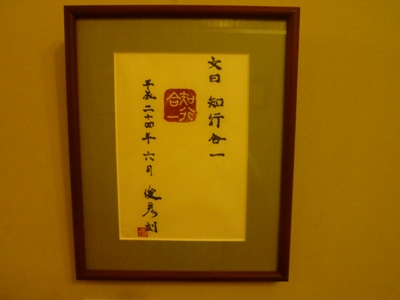 文曰 知行合一
知行
合一
平成二十四年 六月 俊彦刻